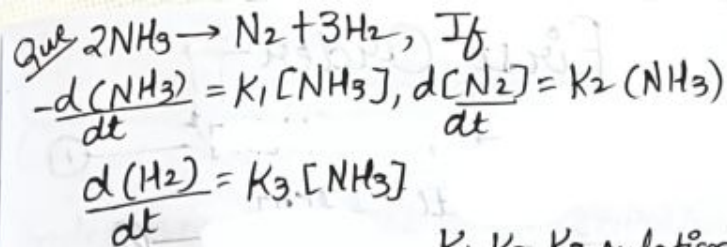 Que 2NH3 → N2 + 3H2, If
-d(NH3)/dt = K1[NH3], d[N2]/dt = K2(NH3)
d(H2)/dt = K3.[NH3]